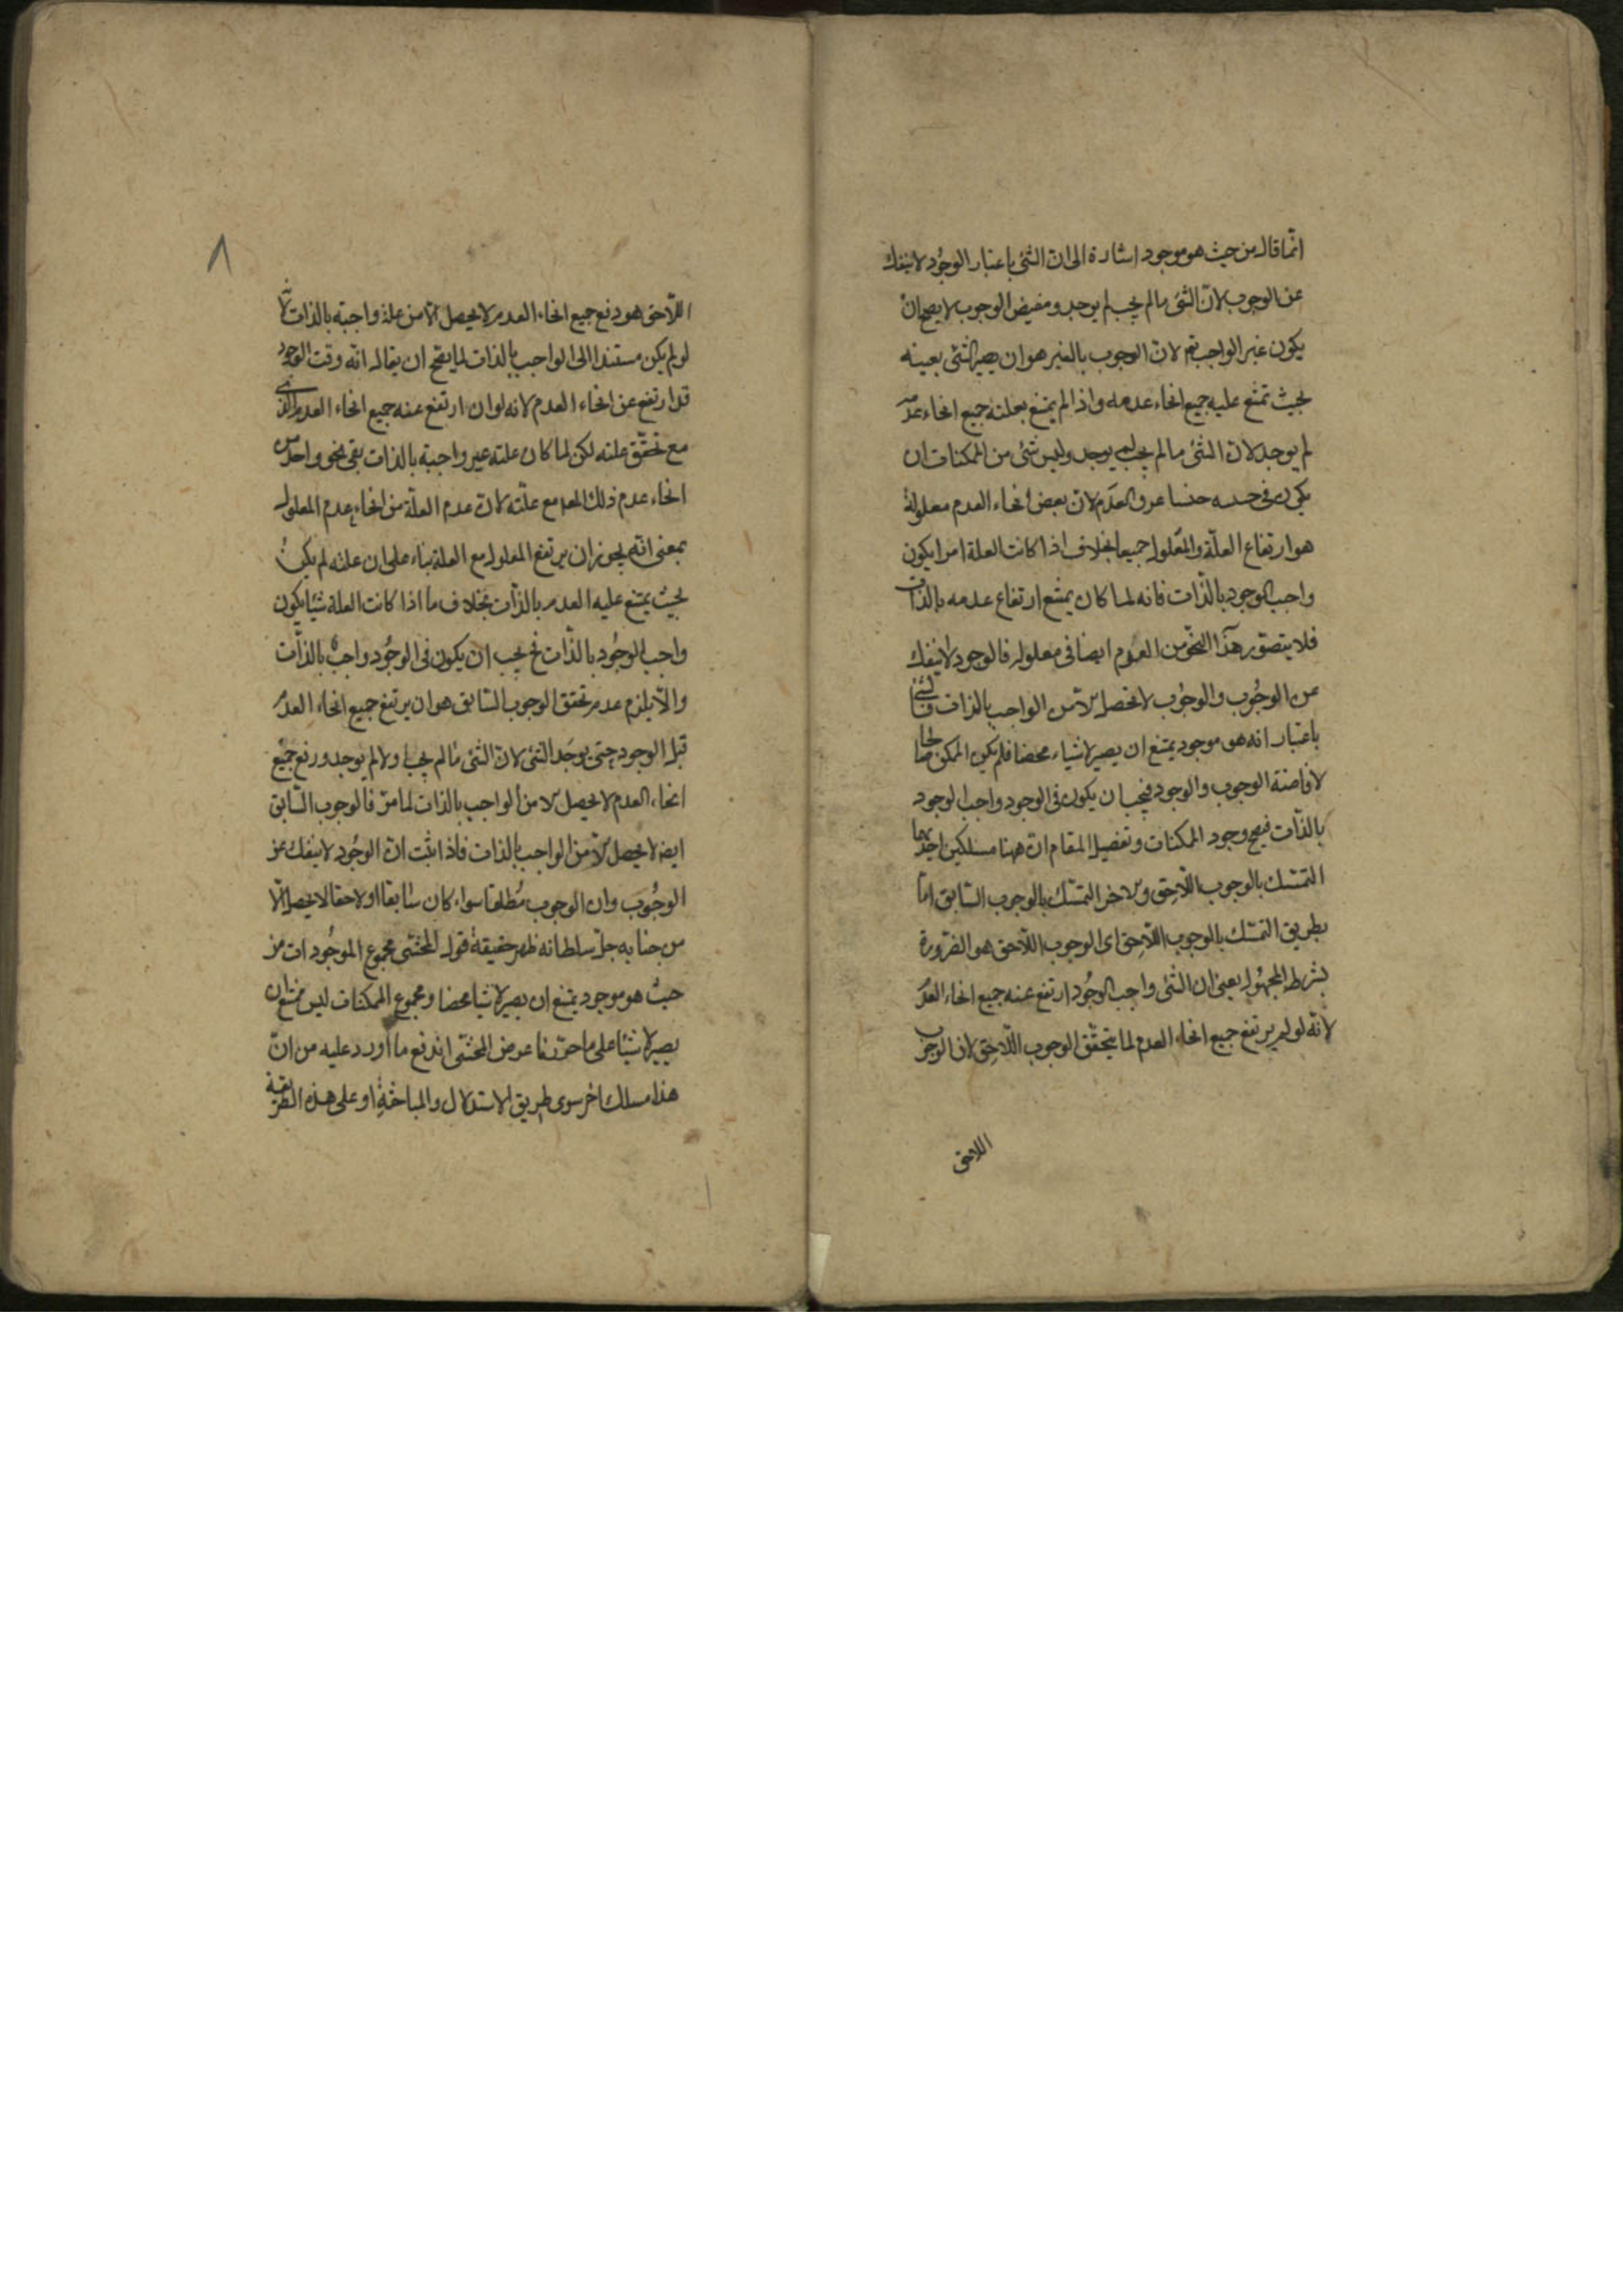 انما قال من حيث هو موجود اشارة الى ان الشئ باعتبار الوجود لا ينفك
عن الوجوب لان الشئ ما لم يجب لم يوجد ومفيض الوجوب لا يصح ان
يكون غير الواجب تعم لان الوجوب بالغير هو ان يصير الشئ بعينه
بحيث تمتنع عليه جميع انحاء عدمه واذا لم يمتنع بعلته جميع انحاء عدمه
لم يوجد لان الشئ ما لم يجب لم يوجد وليس شئ من الممكنات ان
يكون فى حد العدم لان بعض انحاء العدم معلولة
هو ارتفاع العلة والمعلول جميعا بخلاف اذا كانت العلة امرا يكون
واجب الوجود بالذات فانه لما كان يمتنع ارتفاع عدمه بالذات
فلا يتصور هذا النحو من العدم ايضا فى معلوله فالوجود لا ينفك
عن الوجوب والوجوب لا تحصل الا من الواجب بالذات فالشئ
باعتبار انه هو موجود يمتنع ان يصير لا شياء محضا فلم يكن الممكن صالحا
لافاضة الوجوب والوجود فيجب ان يكون فى الوجود واجب الوجود
بالذات فيصح وجود الممكنات وتفصيل المقام ان ههنا مسلكين احدهما
التمسك بالوجوب اللاحق والاخر التمسك بالوجوب السابق اما
بطريق التمسك بالوجوب اللاحق اى الوجوب اللاحق هو الضرورة
بشرط المجهول يعنى ان الشئ واجب الوجود ارتفع عنه جميع انحاء العدم
لانه لو لم يرتفع جميع انحاء العدم لما يتحقق الوجوب اللاحق لان الوجوب
اللاحق
٨
اللاحق هو رفع جميع انحاء العدم لا يحصل الا من علة واجبة بالذات
لو لم يكن مستندا الى الواجب بالذات لما يصح ان يقال انه وقت الوجود
قد ارتفع عن انحاء العدم لانه لو ان ارتفع عنه جميع انحاء العدم
مع تحقق علته لكن لما كان علته غير واجبة بالذات بقى نحو واحد من
انحاء عدم ذلك العدم مع علته لان عدم العلة من انحاء عدم المعلول
بمعنى انه يجوز ان يرتفع المعلول مع العلة بناء على ان علته لم يكن
بحيث يمتنع عليه العدم بالذات بخلاف ما اذا كانت العلة شيئا يكون
واجب الوجود بالذات فح يجب ان يكون فى الوجود واجب بالذات
والا يلزم عدم تحقق الوجوب السابق هو ان يرتفع جميع انحاء العدم
قبل الوجود حتى يوجد الشئ لان الشئ ما لم يجب اولا لم يوجد ورفع جميع
انحاء العدم لا يحصل الا من الواجب بالذات لما مر فالوجوب السابق
ايضا لا يحصل الا من الواجب بالذات فاذا ثبت ان الوجود لا ينفك عن
الوجوب وان الوجوب مطلقا سواء كان سابقا او لاحقا لا يحصل الا
من جنابه جل سلطانه ظهر حقيقة قول المحشى مجموع الموجودات من
حيث هو موجود يمتنع ان يصير لا شيئا محضا ومجموع الممكنات ليس يمتنع ان
يصير لا شيئا على ما حررنا عرض المحشى اندفع ما اورد عليه من ان
هذا مسلك اخر سوى طريق الاستدلال والمباحثة او على هذه الطريقة